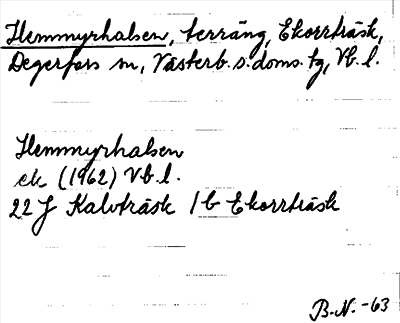 Hemmyrhalsen, terräng, Ekorrträsk,
Degerfors sn, Västerb. s. doms. tg, Vb. l.
Hemmyrhalsen
ek (1962) Vb. l.
22 J Kalvträsk 1b Ekorrträsk
B.N. -63